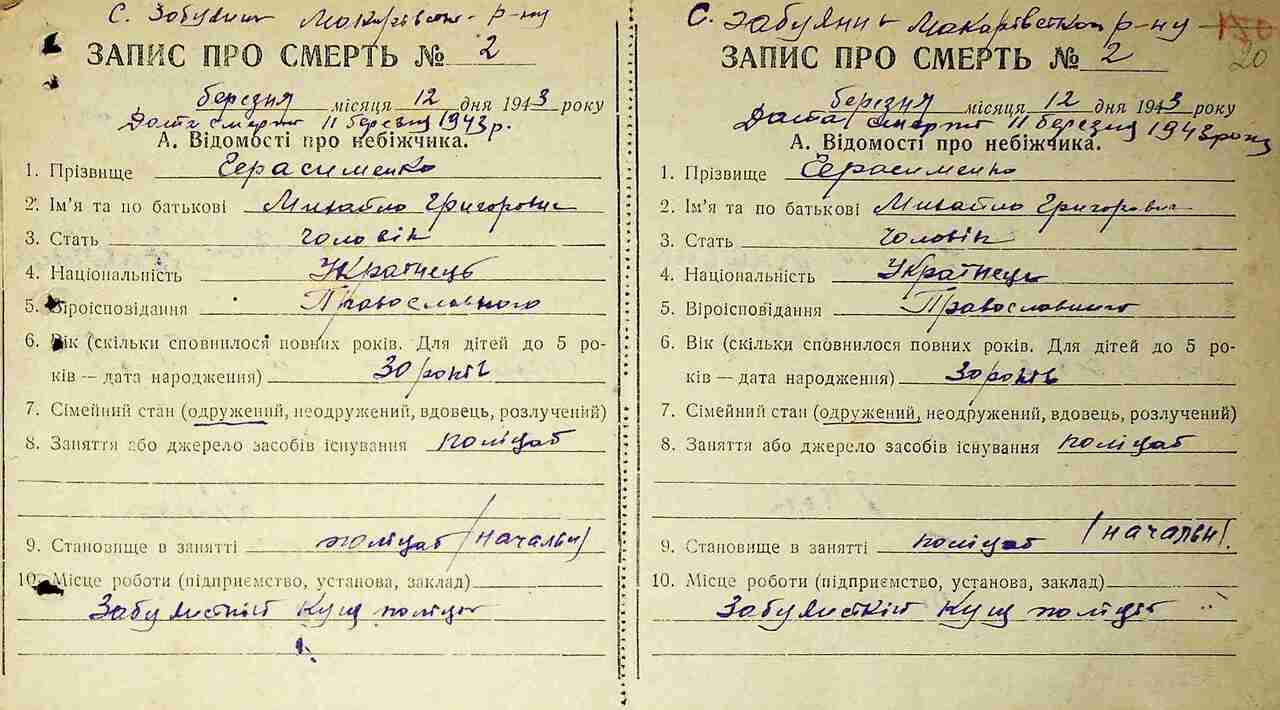 С. Забуяни Макарівськ. р-ну
ЗАПИС ПРО СМЕРТЬ № 2
березня місяця 12 дня 1943 року
Дата смерти 11 березня 1943 р.
А. Відомості про небіжчика.
1. Прізвище Герасименко
2. Ім'я та по батькові Михайло Григорович
3. Стать чоловік
4. Національність Українець
5. Віроісповідання Православного
6. Вік (скільки сповнилося повних років. Для дітей до 5 ро-
ків — дата народження) 30 років
7. Сімейний стан (одружений, неодружений, вдовець, розлучений)
8. Заняття або джерело засобів існування поліцай
9. Становище в занятті поліцай (начальн)
10. Місце роботи (підприємство, установа, заклад)
Кущ поліції
С. Забуяни Макарівської р-ну 20
ЗАПИС ПРО СМЕРТЬ № 2
березня місяця 12 дня 1943 року
Дата смерти 11 березня 1943 року
А. Відомості про небіжчика.
1. Прізвище Герасименко
2. Ім'я та по батькові Михайло Григорович
3. Стать чоловік
4. Національність Українець
5. Віроісповідання Православного
6. Вік (скільки сповнилося повних років. Для дітей до 5 ро-
ків — дата народження) 30 років
7. Сімейний стан (одружений, неодружений, вдовець, розлучений)
8. Заняття або джерело засобів існування поліцай
9. Становище в занятті поліцай (начальн).
10. Місце роботи (підприємство, установа, заклад)
Кущ поліції